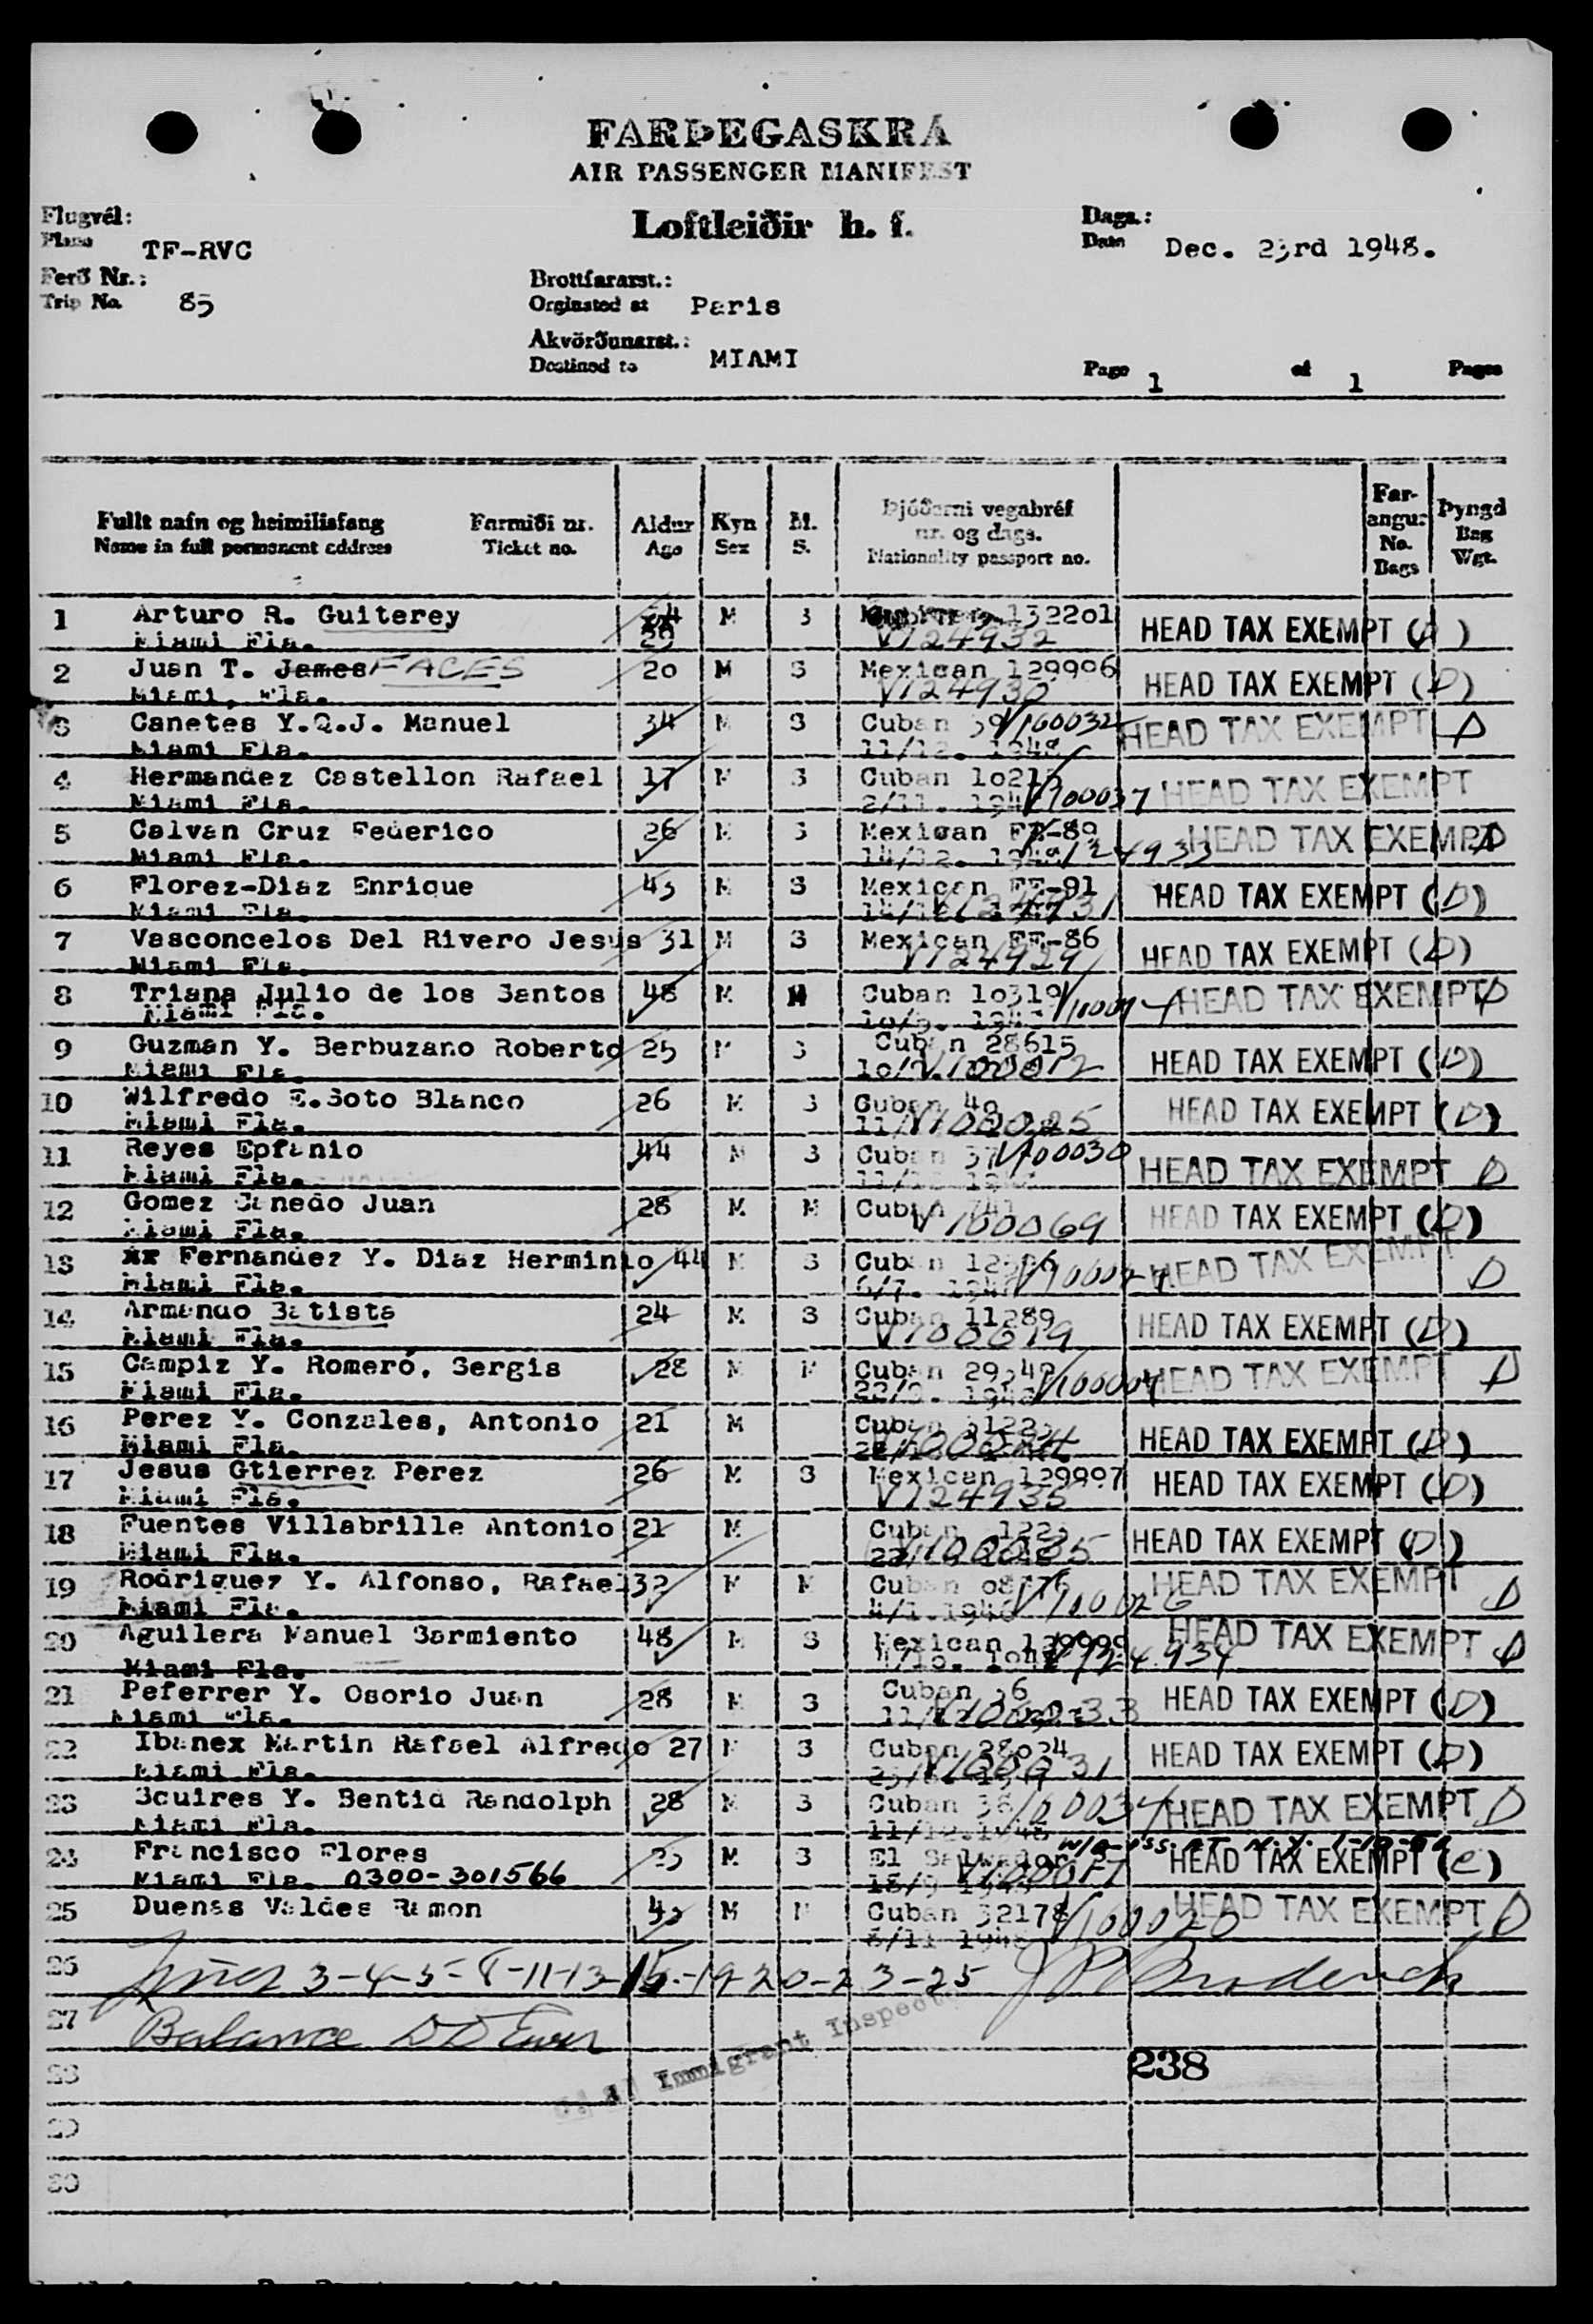 FARÞEGASKRÁ
AIR PASSENGER MANIFEST
Loftleiðir h. f.
Flugvél:
Plane TF-RVC
Dags.:
Date Dec. 23rd 1948.
Ferð Nr.:
Trip No. 85
Brottfararst.:
Orginated at Paris
Akvörðunarst.:
Destined to MIAMI
Page 1 of 1 Pages
Fullt nafn og heimilisfang Farmiði nr. Aldur Kyn M. Þjóðerni vegabréf nr. og dags. Far-angur No. Bags Þyngd Bag Wgt.
Name in full permanent address Ticket no. Age Sex S. Nationality passport no.
1 Arturo R. Guiterey M S 132201 HEAD TAX EXEMPT ( )
Miami Fla. V124932
2 Juan T. James FACES 20 M S Mexican 129996 HEAD TAX EXEMPT (D)
Miami, Fla. V124930
3 Canetes Y.Q.J. Manuel 34 M S Cuban 39 V100032 HEAD TAX EXEMPT D
Miami Fla. 11/12. 1948
4 Hermandez Castellon Rafael 17 M S Cuban HEAD TAX EXEMPT
Miami Fla. V100037
5 Calvan Cruz Federico 26 M S Mexican FE-89 HEAD TAX EXEMPT D
Miami Fla. 14/12. V124933
6 Florez-Diaz Enrique 43 M S Mexican FE-91 HEAD TAX EXEMPT (D)
Miami Fla. V124931
7 Vasconcelos Del Rivero Jesus 31 M S Mexican FE-86 HEAD TAX EXEMPT (D)
Miami Fla. V124929
8 Triana Julio de los Santos 48 M M Cuban 10319 HEAD TAX EXEMPT D
Miami Fla.
9 Guzman Y. Berbuzano Roberto 25 M S Cuban 28615 HEAD TAX EXEMPT (D)
Miami Fla. V100012
10 Wilfredo E.Soto Blanco 26 M S Cuban 40 HEAD TAX EXEMPT (D)
Miami Fla. V100025
11 Reyes Epfanio 44 M S Cuban 37 V100030 HEAD TAX EXEMPT D
Miami Fla.
12 Gomez Canedo Juan 28 M M Cuban HEAD TAX EXEMPT (D)
Miami Fla. V100069
13 xr Fernandez Y. Diaz Herminio 44 M S Cuban HEAD TAX EXEMPT D
Miami Fla.
14 Armando Batista 24 M S Cuban 11289 HEAD TAX EXEMPT (D)
Miami Fla. V100019
15 Campiz Y. Romeró, Sergis 28 M M Cuban HEAD TAX EXEMPT D
Miami Fla. V100004
16 Perez Y. Conzales, Antonio 21 M Cuban HEAD TAX EXEMPT (D)
Miami Fla.
17 Jesus Gtierrez Perez 26 M S Mexican 129997 HEAD TAX EXEMPT (D)
Miami Fla. V124935
18 Fuentes Villabrille Antonio 21 M Cuban HEAD TAX EXEMPT (D)
Miami Fla.
19 Rodriguez Y. Alfonso, Rafael 32 M M Cuban HEAD TAX EXEMPT D
Miami Fla. 4/1.1946 V100026
20 Aguilera Manuel Sarmiento 48 M S Mexican 129999 HEAD TAX EXEMPT D
Miami Fla. V124934
21 Peferrer Y. Osorio Juan 28 M S Cuban 36 HEAD TAX EXEMPT (D)
Miami Fla. V100033
22 Ibanex Martin Rafael Alfredo 27 M S Cuban 28024 HEAD TAX EXEMPT (D)
Miami Fla. V100031
23 Squires Y. Bentid Randolph 28 M S Cuban 38 HEAD TAX EXEMPT D
Miami Fla. 11/12.1948
24 Francisco Flores M S El Salvador HEAD TAX EXEMPT (C)
Miami Fla. 0300-301566
25 Duenas Valdes Ramon M M Cuban 32178 V100020 HEAD TAX EXEMPT D
26 Lines 3-4-5-8-11-13-15-19-20-23-25
27 Balance
Immigrant Inspector
238
28
29
30